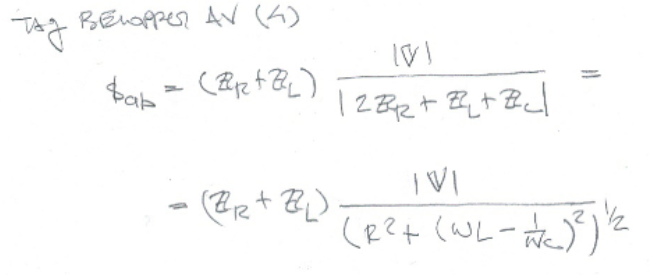 TAg BELOPPET AV (4)
$ab = (ZR+ZL) |V| / |2ZR + ZL + ZC| =
= (ZR + ZL) |V| / (R² + (WL - 1/WC)²)^1/2